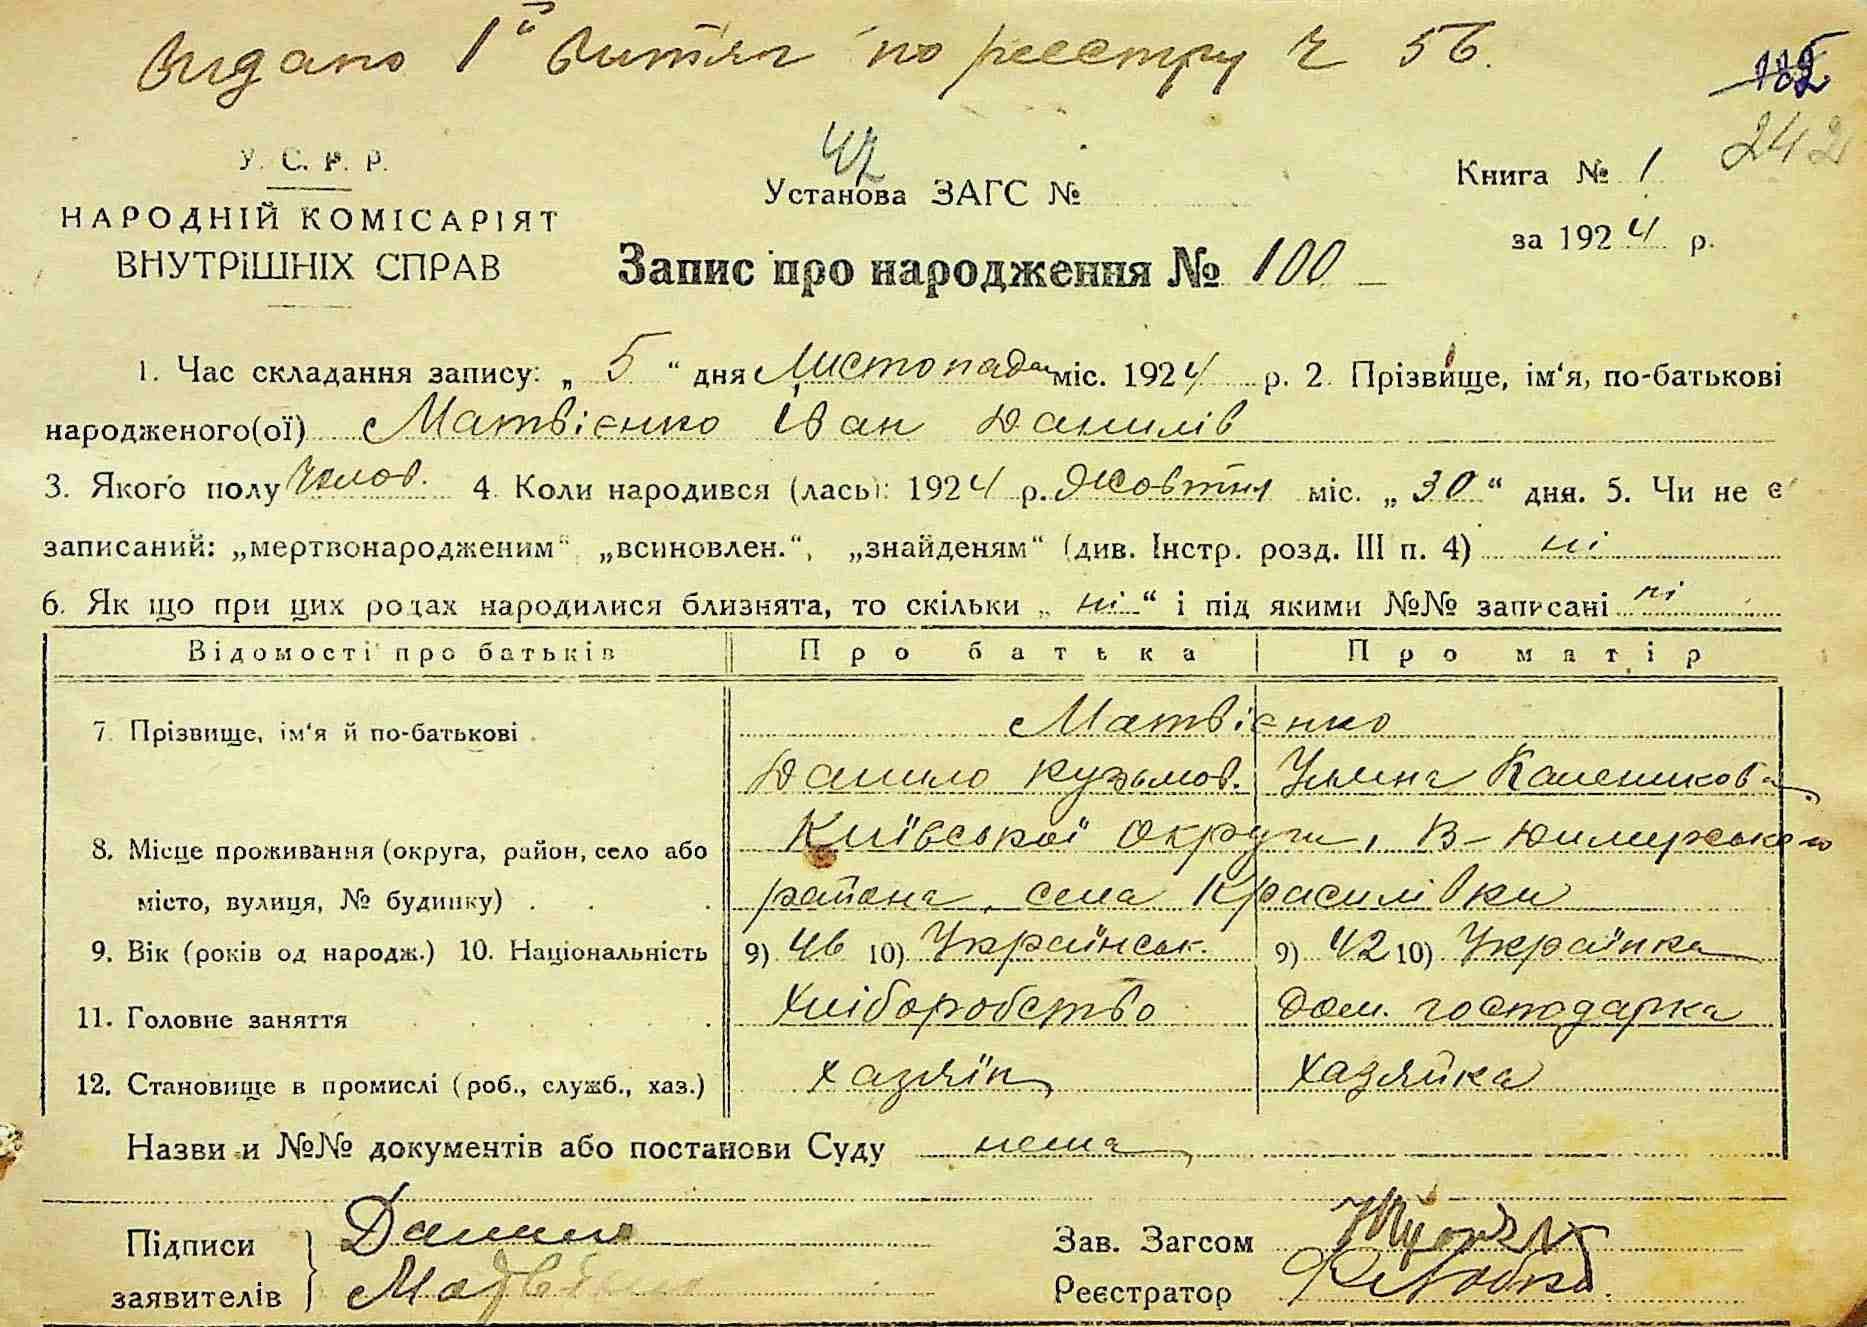 Видано 1й витяг по реєстру Ч 56.
242
У. С. Р. Р.
НАРОДНІЙ КОМІСАРІЯТ
ВНУТРІШНІХ СПРАВ
42
Установа ЗАГС №
Книга № 1
за 1924 р.
Запис про народження № 100
1. Час складання запису: „ 5 “ дня Листопада міс. 1924 р. 2. Прізвище, ім‘я, по-батькові
народженого(ої) Матвієнко Іван Данилів
3. Якого полу Чолов. 4. Коли народився (лась): 1924 р. Жовтня міс. „ 30 “ дня. 5. Чи не є
записаний: „мертвонародженим“ „всиновлен.“, „знайденям“ (див. Інстр. розд. III п. 4) ні
6. Як що при цих родах народилися близнята, то скільки „ ні “ і під якими №№ записані ні
Відомості про батьків Про батька Про матір
7. Прізвище, ім‘я й по-батькові Матвієнко
Данило Кузьмов. Улина Каленикова
8. Місце проживання (округа, район, село або Київської округи, В-Димерського
місто, вулиця, № будинку) района, села Красилівки
9. Вік (років од народж.) 10. Національність 9) 46 10) Українськ. 9) 42 10) Українка
11. Головне заняття Хліборобство Дом. господарка
12. Становище в промислі (роб., служб., хаз.) хазяїн хазяйка
Назви и №№ документів або постанови Суду нема
Підписи Данило Зав. Загсом
заявителів Матвієнко Реєстратор